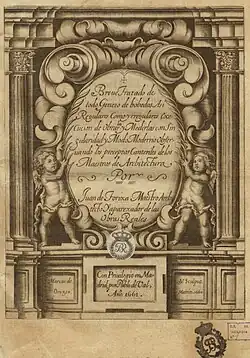 Breve Tratado de
todo Genero de bobedas Asi
Regulares Como yrregulares Exe
Cucion de Obras y Medirlas con Sin
gularidad y Modo Moderno Obser
uando los preceptos Canteriles de los
Maestros de Architectura
Por
Juan de Torixa Maestro Archi
tecto y aparexador de las
Obras Reales
Con Priuilegio en Ma
drid por Pablo de Val
Año 1661
Marcos de
Orozco